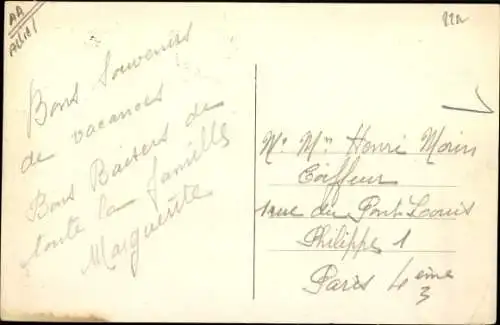 AA
Allier
22n
Bons Souvenirs
de vacances
Bons Baisers de
toute la famille
Marguerite
Mr. Mme Henri Morin
Coiffeur
1 rue du Pont-Louis
Philippe 1
Paris 4eme
3